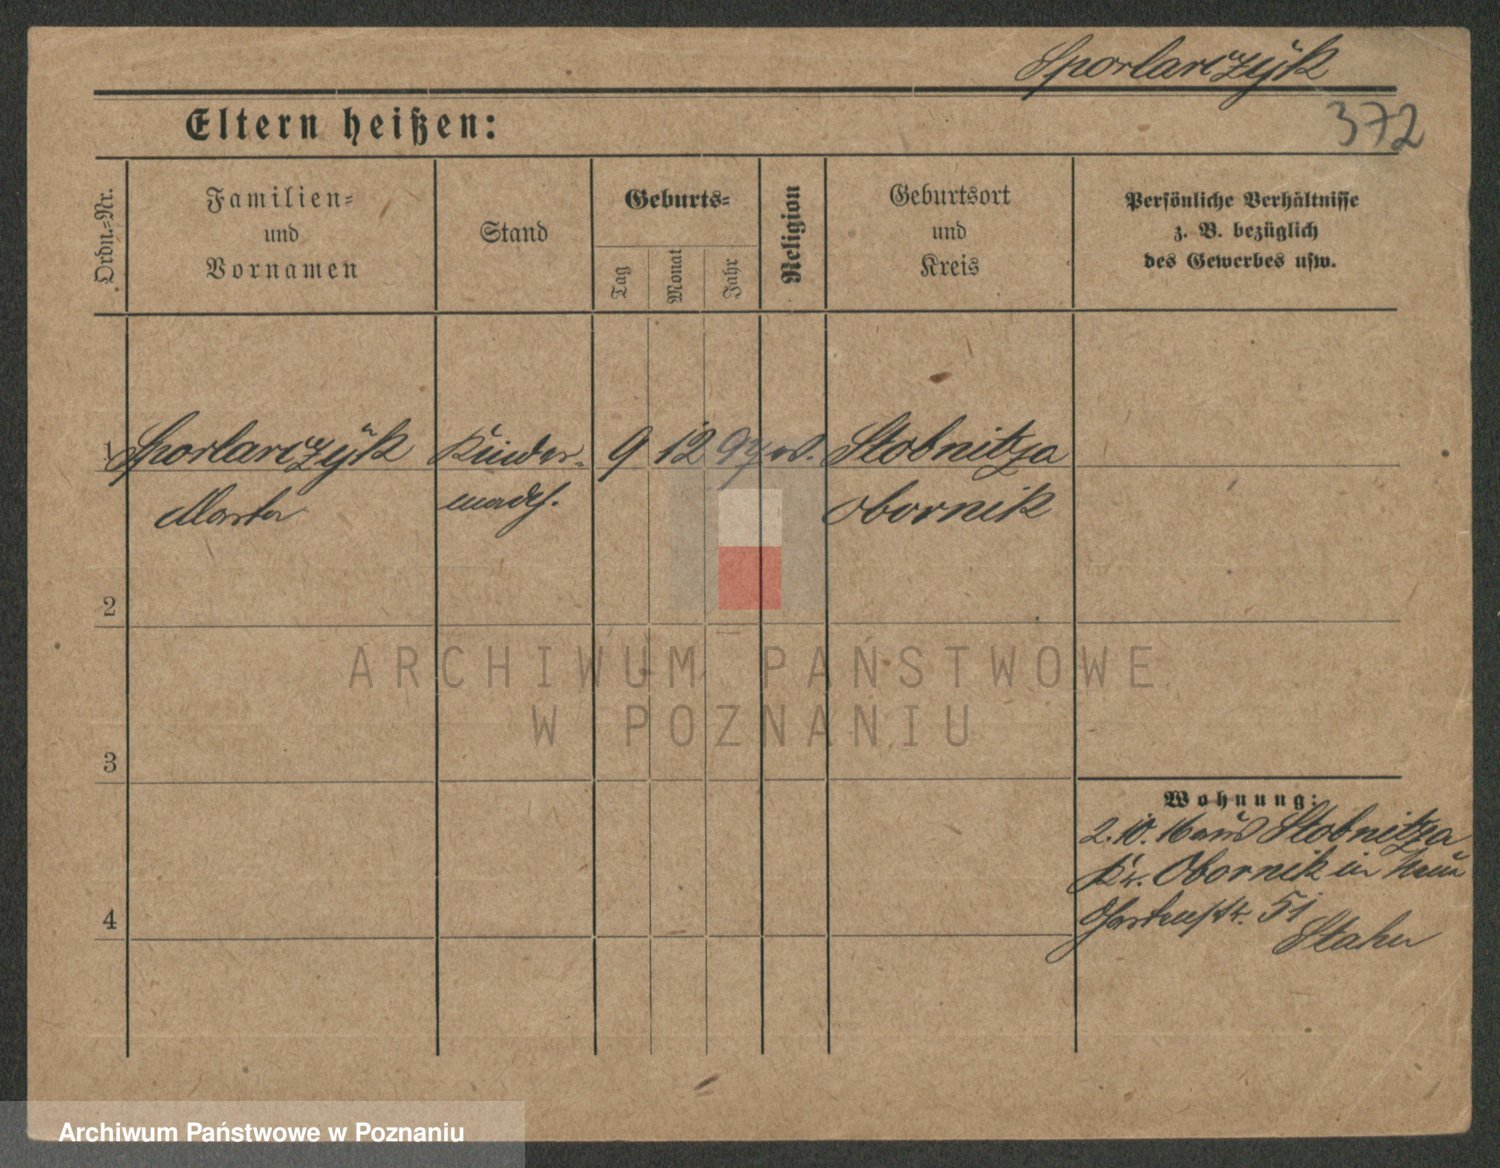 Sporlarczÿk
372
Eltern heißen:
Ordn.=Nr.
Familien=
und
Vornamen
Stand
Geburts=
Tag
Monat
Jahr
Religion
Geburtsort
und
Kreis
Persönliche Verhältnisse
z. B. bezüglich
des Gewerbes usw.
1 Sporlarczÿk Kinder= 9 12 99 Stobnitza
Marta mädch. Obornik
2
3
4
Wohnung:
2. 10. 16 aus Stobnitza
Kr. Obornik in
Gartenstr. 51
ARCHIWUM PAŃSTWOWE
W POZNANIU
Archiwum Państwowe w Poznaniu